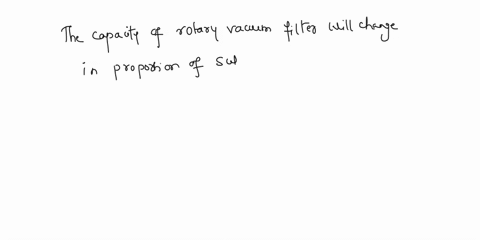 The capacity of rotary vacuum filter will change
in proportion of sul